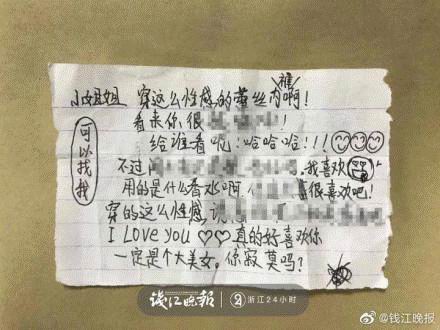 小姐姐 穿这么性感的蕾丝内裤啊！
看来你很
给谁看呢！哈哈哈！！！
可以找我
不过 我喜欢
用的是什么香水啊 很喜欢吧！
穿的这么性感，
I Love you ♡♡真的好喜欢你
一定是个大美女，你寂寞吗？
钱江晚报 浙江24小时
@钱江晚报